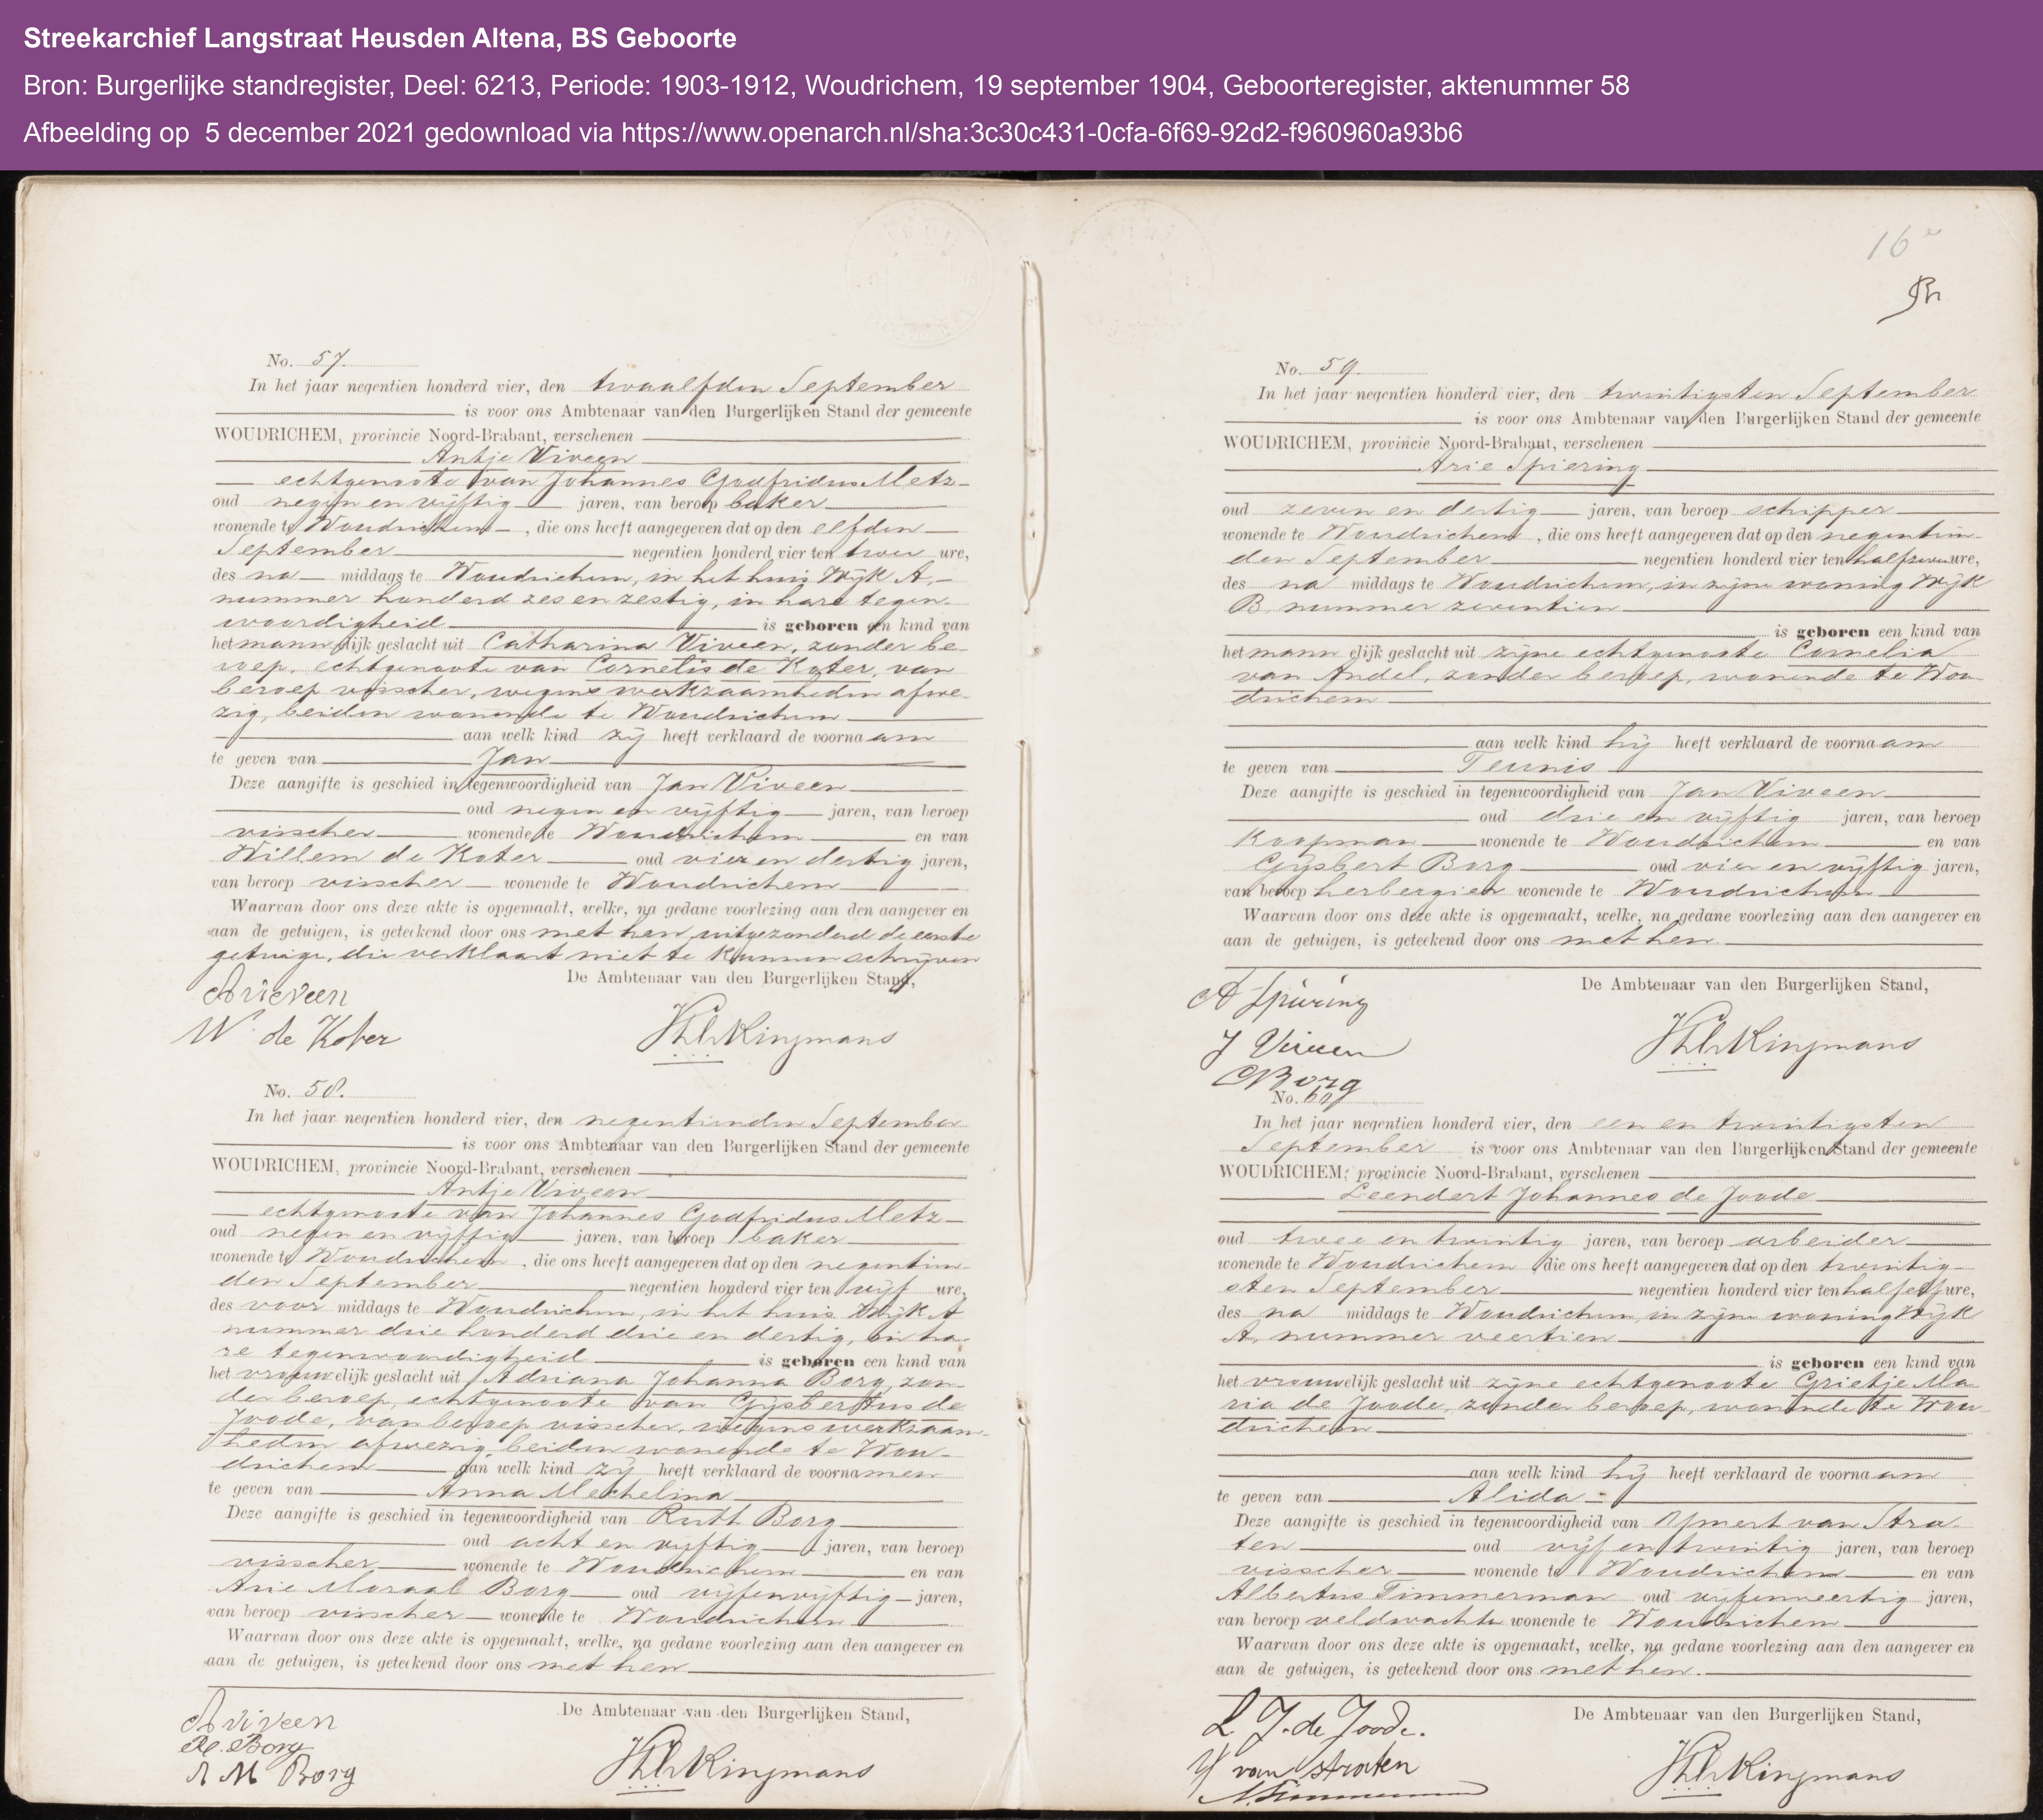 Streekarchief Langstraat Heusden Altena, BS Geboorte
Bron: Burgerlijke standregister, Deel: 6213, Periode: 1903-1912, Woudrichem, 19 september 1904, Geboorteregister, aktenummer 58
Afbeelding op 5 december 2021 gedownload via https://www.openarch.nl/sha:3c30c431-0cfa-6f69-92d2-f960960a93b6
No. 57.
In het jaar negentien honderd vier, den twaalfden September
is voor ons Ambtenaar van den Burgerlijken Stand der gemeente
WOUDRICHEM, provincie Noord-Brabant, verschenen
Antje Viveen
echtgenoote van Johannes Godfridus Metz
oud negen en vijftig jaren, van beroep baker
wonende te Woudrichem, die ons heeft aangegeven dat op den elfden
September negentien honderd vier ten twee ure,
des na middags te Woudrichem, in het huis Wijk A,
nummer honderd zes en zestig, in hare tegen-
woordigheid is geboren een kind van
het mannelijk geslacht uit Catharina Viveen, zonder be-
roep, echtgenoote van Cornelis de Koter, van
beroep visscher, wegens werkzaamheden afwe-
zig, beiden wonende te Woudrichem
aan welk kind zij heeft verklaard de voornaam
te geven van Jan
Deze aangifte is geschied in tegenwoordigheid van Jan Viveen
oud negen en vijftig jaren, van beroep
visscher wonende te Woudrichem en van
Willem de Koter oud vier en dertig jaren,
van beroep visscher wonende te Woudrichem
Waarvan door ons deze akte is opgemaakt, welke, na gedane voorlezing aan den aangever en
aan de getuigen, is geteekend door ons met hen, uitgezonderd de eerste
getuige, die verklaart niet te kunnen schrijven
De Ambtenaar van den Burgerlijken Stand,
A Vieveen
W. de Koter
Kingmans
No. 58.
In het jaar negentien honderd vier, den negentienden September
is voor ons Ambtenaar van den Burgerlijken Stand der gemeente
WOUDRICHEM, provincie Noord-Brabant, verschenen
Antje Viveen
echtgenoote van Johannes Godfridus Metz
oud negen en vijftig jaren, van beroep baker
wonende te Woudrichem, die ons heeft aangegeven dat op den negentien-
den September negentien honderd vier ten vijf ure,
des voor middags te Woudrichem, in het huis Wijk A
nummer drie honderd drie en dertig, in ha-
re tegenwoordigheid is geboren een kind van
het vrouwelijk geslacht uit Adriana Johanna Borg, zon-
der beroep, echtgenoote van Gijsbertus de
Joode, van beroep visscher, wegens werkzaam-
heden afwezig, beiden wonende te Wou-
drichem aan welk kind zij heeft verklaard de voornamen
te geven van Anna Mechelina
Deze aangifte is geschied in tegenwoordigheid van Rutt Borg
oud acht en vijftig jaren, van beroep
visscher wonende te Woudrichem en van
Arie Maraal Borg oud vijfenvijftig jaren,
van beroep visscher wonende te Woudrichem
Waarvan door ons deze akte is opgemaakt, welke, na gedane voorlezing aan den aangever en
aan de getuigen, is geteekend door ons met hen
De Ambtenaar van den Burgerlijken Stand,
A viveen
R. Borg
A M Borg
Kingmans
16e
No. 59.
In het jaar negentien honderd vier, den twintigsten September
is voor ons Ambtenaar van den Burgerlijken Stand der gemeente
WOUDRICHEM, provincie Noord-Brabant, verschenen
Arie Spiering
oud zeven en dertig jaren, van beroep schipper
wonende te Woudrichem, die ons heeft aangegeven dat op den negentien-
den September negentien honderd vier ten halfzeven ure,
des na middags te Woudrichem, in zijne woning Wijk
B, nummer zeventien
is geboren een kind van
het mannelijk geslacht uit zijne echtgenoote Cornelia
van Andel, zonder beroep, wonende te Wou-
drichem
aan welk kind hij heeft verklaard de voornaam
te geven van Teunis
Deze aangifte is geschied in tegenwoordigheid van Jan Viveen
oud drie en vijftig jaren, van beroep
Koopman wonende te Woudrichem en van
Gijsbert Borg oud vier en vijftig jaren,
van beroep herbergier wonende te Woudrichem
Waarvan door ons deze akte is opgemaakt, welke, na gedane voorlezing aan den aangever en
aan de getuigen, is geteekend door ons met hen
De Ambtenaar van den Burgerlijken Stand,
A Spiering
J Viveen
G Borg
Kingmans
No. 60
In het jaar negentien honderd vier, den een en twintigsten
September is voor ons Ambtenaar van den Burgerlijken Stand der gemeente
WOUDRICHEM, provincie Noord-Brabant, verschenen
Leendert Johannes de Joode
oud twee en twintig jaren, van beroep arbeider
wonende te Woudrichem, die ons heeft aangegeven dat op den twintig-
sten September negentien honderd vier ten halfelf ure,
des na middags te Woudrichem, in zijne woning Wijk
A, nummer veertien
is geboren een kind van
het vrouwelijk geslacht uit zijne echtgenoote Grietje Ma-
ria de Joode, zonder beroep, wonende te Wou-
drichem
aan welk kind hij heeft verklaard de voornaam
te geven van Alida
Deze aangifte is geschied in tegenwoordigheid van IJmert van Stra-
ten oud vijf en twintig jaren, van beroep
visscher wonende te Woudrichem en van
Albertus Timmerman oud vijfenveertig jaren,
van beroep veldwachter wonende te Woudrichem
Waarvan door ons deze akte is opgemaakt, welke, na gedane voorlezing aan den aangever en
aan de getuigen, is geteekend door ons met hen.
De Ambtenaar van den Burgerlijken Stand,
L. J. de Joode.
IJ van Straten
A. Timmerman
Kingmans